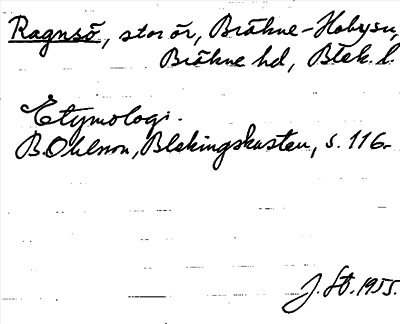 Ragnsö, stor ör, Bräkne-Hobysn,
Bräkne hd, Blek. l.
Etymologi.
B. Ohlsson, Blekingskusten, s. 116-
J. St. 1955.